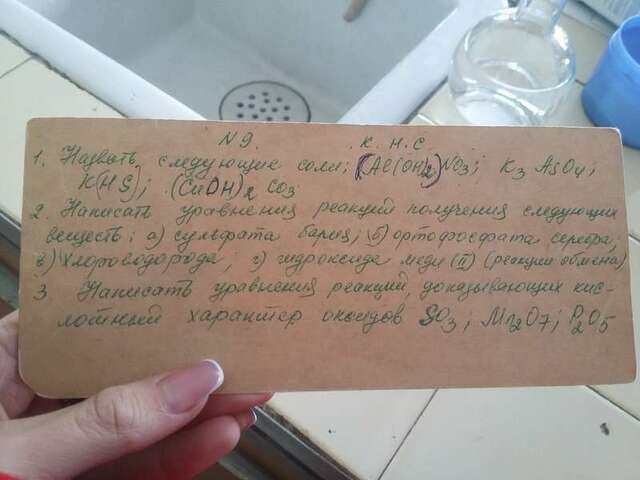 N 9. К. Н. С.
1. Назвать следующие соли; (Al(OH)2)NO3; K3AsO4;
K(HS); (CuOH)2CO3
2. Написать уравнения реакций получения следующих
веществ: а) сульфата бария; б) ортофосфата серебра;
в) хлороводорода; г) гидроксида меди (II) (реакции обмена)
3. Написать уравнения реакций, доказывающих кис-
лотный характер оксидов SO3; Mn2O7; P2O5